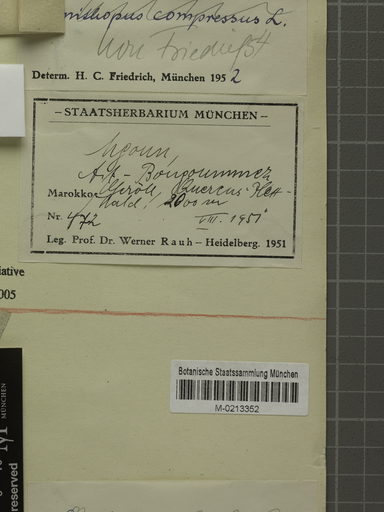 compressus L.
non Friedrich
Determ. H. C. Friedrich, München 1952
– STAATSHERBARIUM MÜNCHEN –
Mgoun,
Ait - Bougoummez
Marokko: Geröll, Quercus-
Wald, 2000 m
Nr. 472 VIII. 1951
Leg. Prof. Dr. Werner Rauh – Heidelberg. 1951
iative
005
Botanische Staatssammlung München
M-0213352
MÜNCHEN
reserved